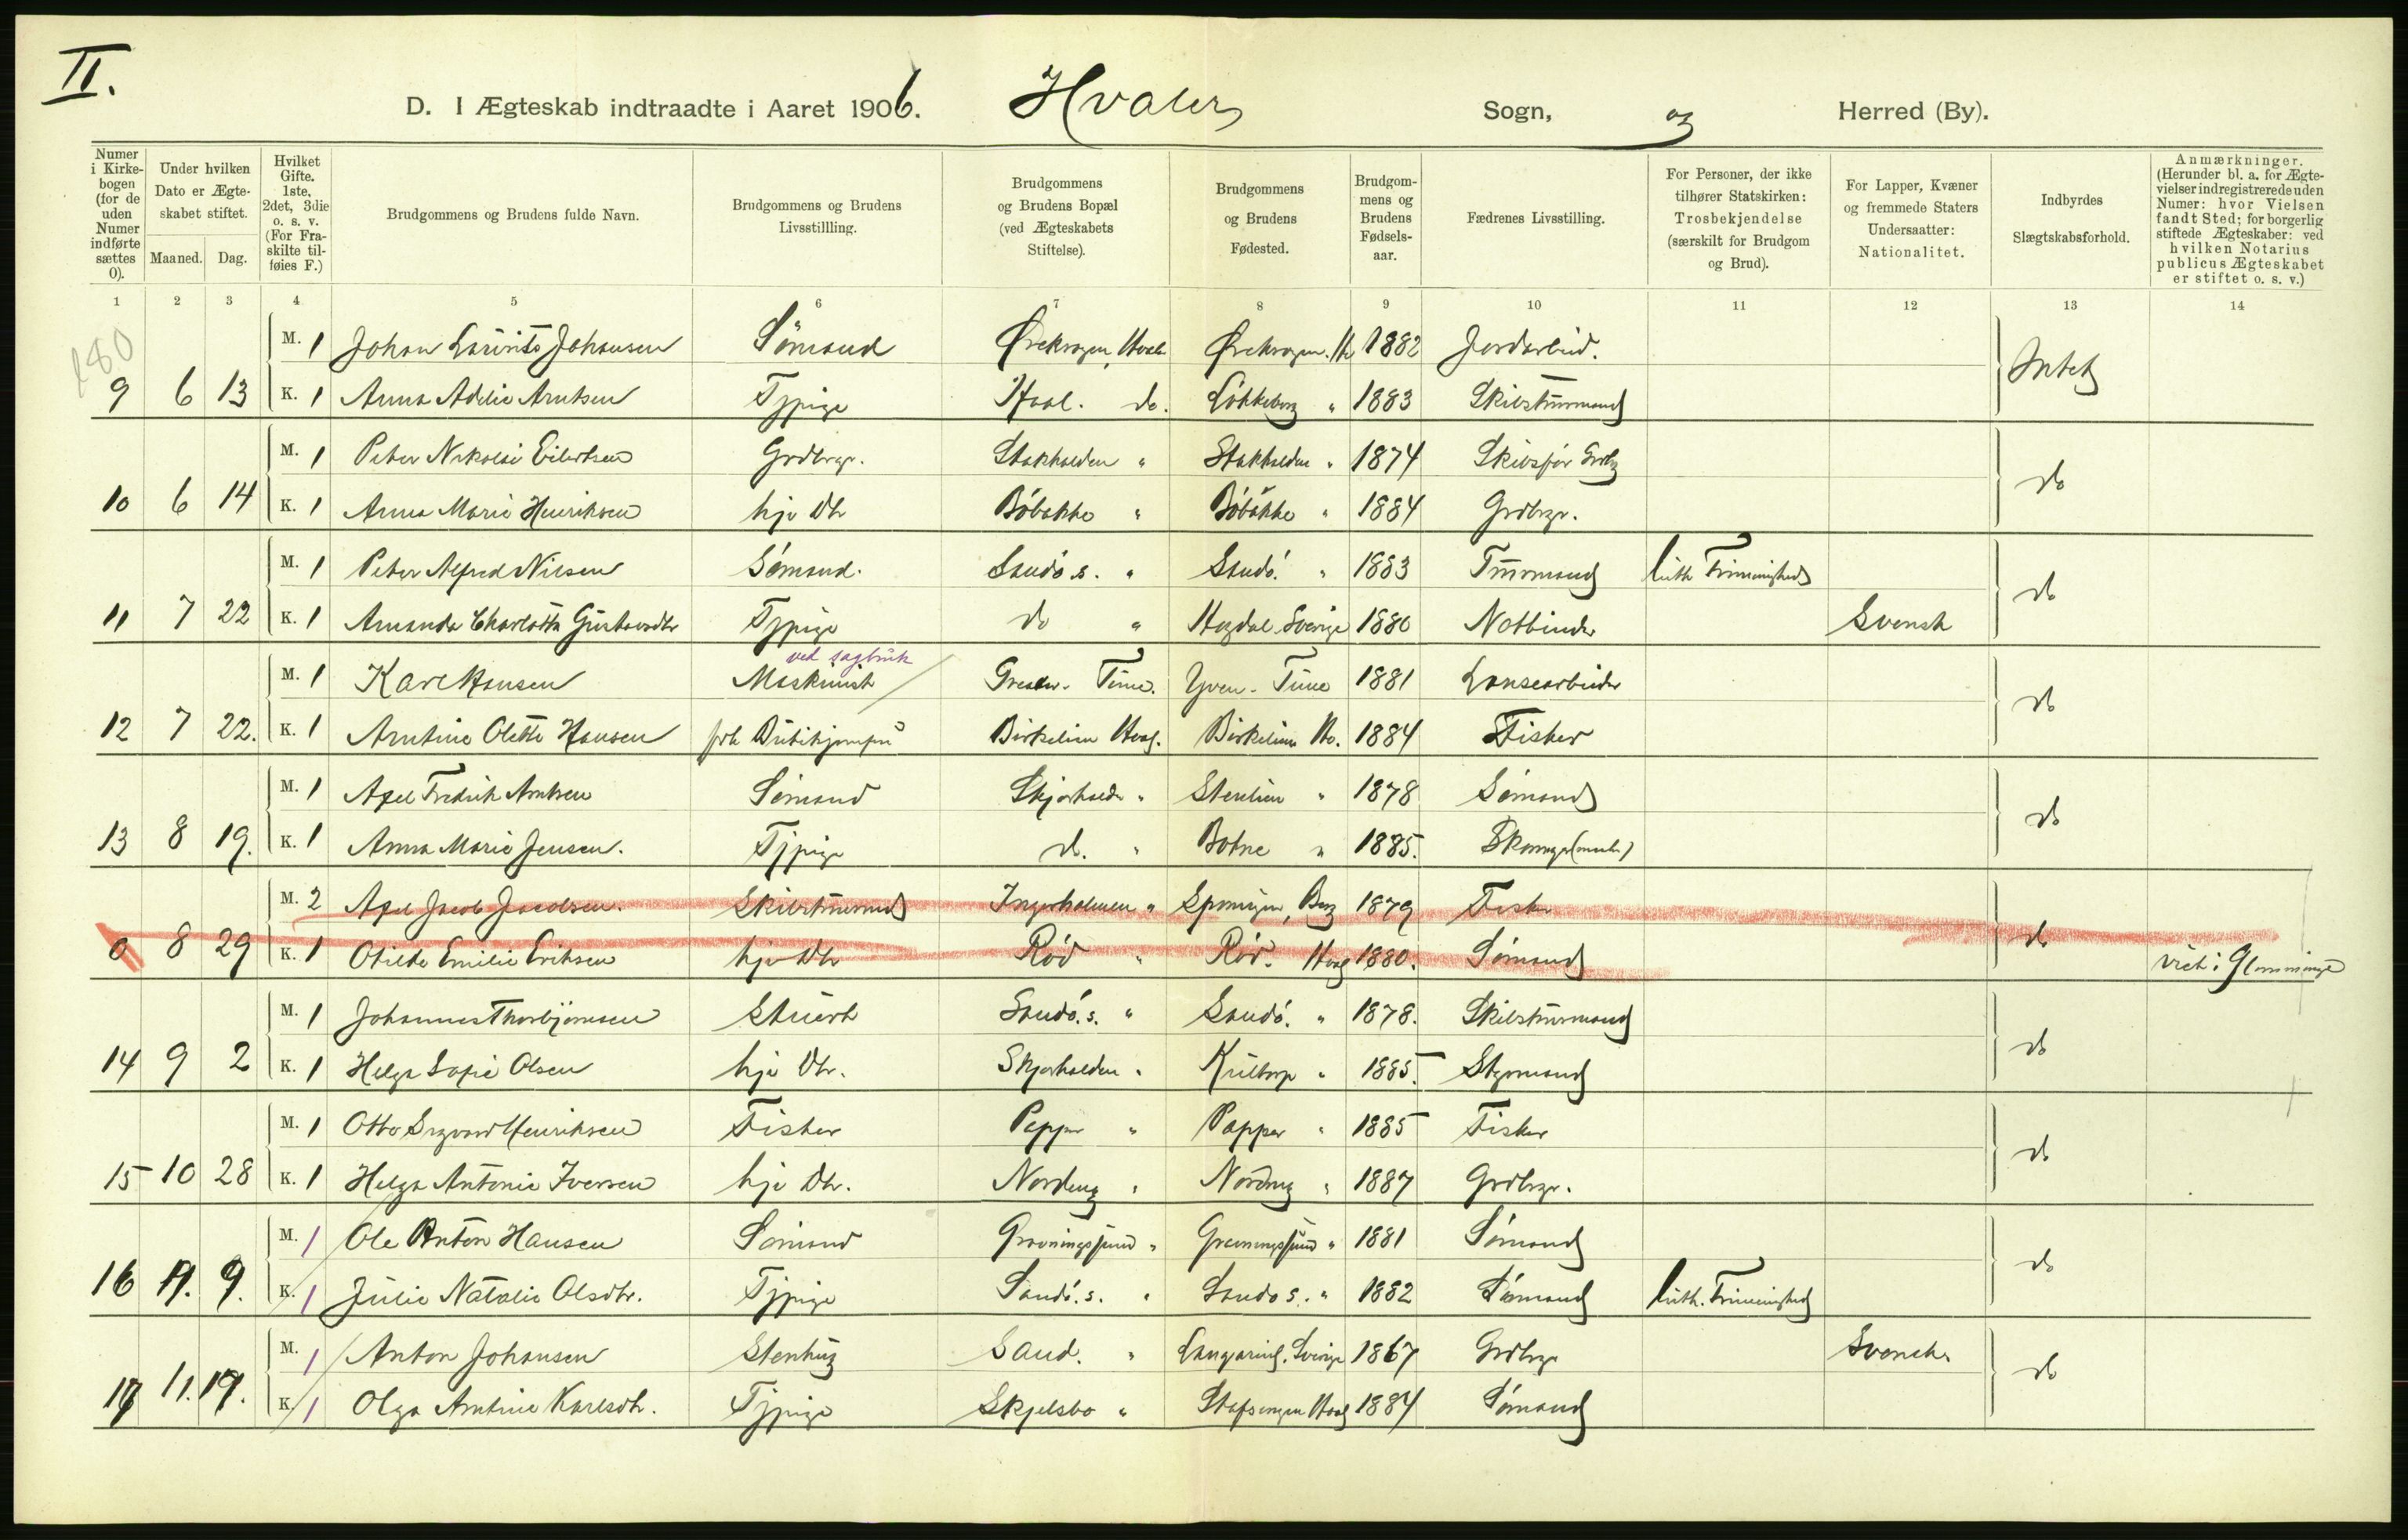 II.
D. I Ægteskab indtraadte i Aaret 1906. Hvaler Sogn, og Herred (By).
Numer i Kirkebogen (for de uden Numer indførte sættes 0).
Under hvilken Dato er Ægteskabet stiftet.
Maaned. Dag.
Hvilket Gifte. 1ste, 2det, 3die o. s. v. (For Fraskilte tilføies F.)
Brudgommens og Brudens fulde Navn.
Brudgommens og Brudens Livsstillling.
Brudgommens og Brudens Bopæl (ved Ægteskabets Stiftelse).
Brudgommens og Brudens Fødested.
Brudgommens og Brudens Fødselsaar.
Fædrenes Livsstilling.
For Personer, der ikke tilhører Statskirken: Trosbekjendelse (særskilt for Brudgom og Brud).
For Lapper, Kvæner og fremmede Staters Undersaatter: Nationalitet.
Indbyrdes Slægtskabsforhold.
Anmærkninger. (Herunder bl. a. for Ægtevielser indregistrerede uden Numer: hvor Vielsen fandt Sted; for borgerlig stiftede Ægteskaber: ved hvilken Notarius publicus Ægteskabet er stiftet o. s. v.)
1 2 3 4 5 6 7 8 9 10 11 12 13 14
180
M. 1 Johan Laurits Johansen Sømand Ørekrogen, Hval. Ørekrogen. Hv 1882 Jordarbeid. Intet
9 6 13 K. 1 Anna Adelie Arntsen Tjpige do. Løkkeberg " 1883 Skibstømmermand
M. 1 Peter Nikolai Eilertsen Grdbrgr. Stokholden " Stokholden " 1874 Skibsfør Grdbr do
10 6 14 K. 1 Anna Marie Henriksen hje Dtr Bøbakke " Bøbakke " 1884 Grdbrgr.
M. 1 Peter Alfred Nilsen Sømand. Sandø s. " Sandø. " 1883 Tømmermand luth Frimenighed do
11 7 22 K. 1 Amanda Charlotta Gustavsdtr Tjpige do " Hogdal Sverige 1880 Notbinder Svensk
ved sagbruk
M. 1 Karl Hansen Maskinist Tune. Yven - Tune 1881 Lensearbeider do
12 7 22. K. 1 Arntine Olette Hansen frh Butikjomfru Birkelien Hval. Birkelien Hv. 1884 Fisker
M. 1 Axel Fredrik Arntsen Sømand Skjærhalden " Stenlien " 1878 Sømand do
13 8 19. K. 1 Anna Marie Jensen. Tjpige d. " Botne " 1885.
M. 2 Axel Jacob Jacobsen. Skibstømmermand Ingerholmen " 1879 Fisker do
0 8 29 K. 1 Otilde Emilie Eriksen hje Dtr Rød " Rød. Hval 1880. Sømand viet i Glemminge
M. 1 Johannes Thorbjørnsen Stuert Sandø. s. " Sandø. " 1878. Skibstømmermand do
14 9 2 K. 1 Helga Sofie Olsen hje Dtr. Skjærhalden " Kiiltorp " 1885. Styrmand
M. 1 Otto Sigvard Henriksen Fisker Papper " Papper " 1885 Fisker do
15 10 28 K. 1 Helga Antonie Iversen hje Dtr. Nordeng " Nordeng " 1887 Grdbrgr.
M. 1 Ole Anton Hansen Sømand Gravningssund " Gravningssund " 1881 Sømand do
16 11. 9. K. 1 Julie Natalie Olsdtr. Tjpige Sandø. s. " Sandø s. " 1882 Sømand luth. Frimenighed
M. 1 Anton Johansen Stenhug Sand. " Sverige 1867 Grdbrgr Svensk do
17 11. 17. K. 1 Olga Arntine Karlsdtr. Tjpige Skjelsbo " Hval 1884 Sømand